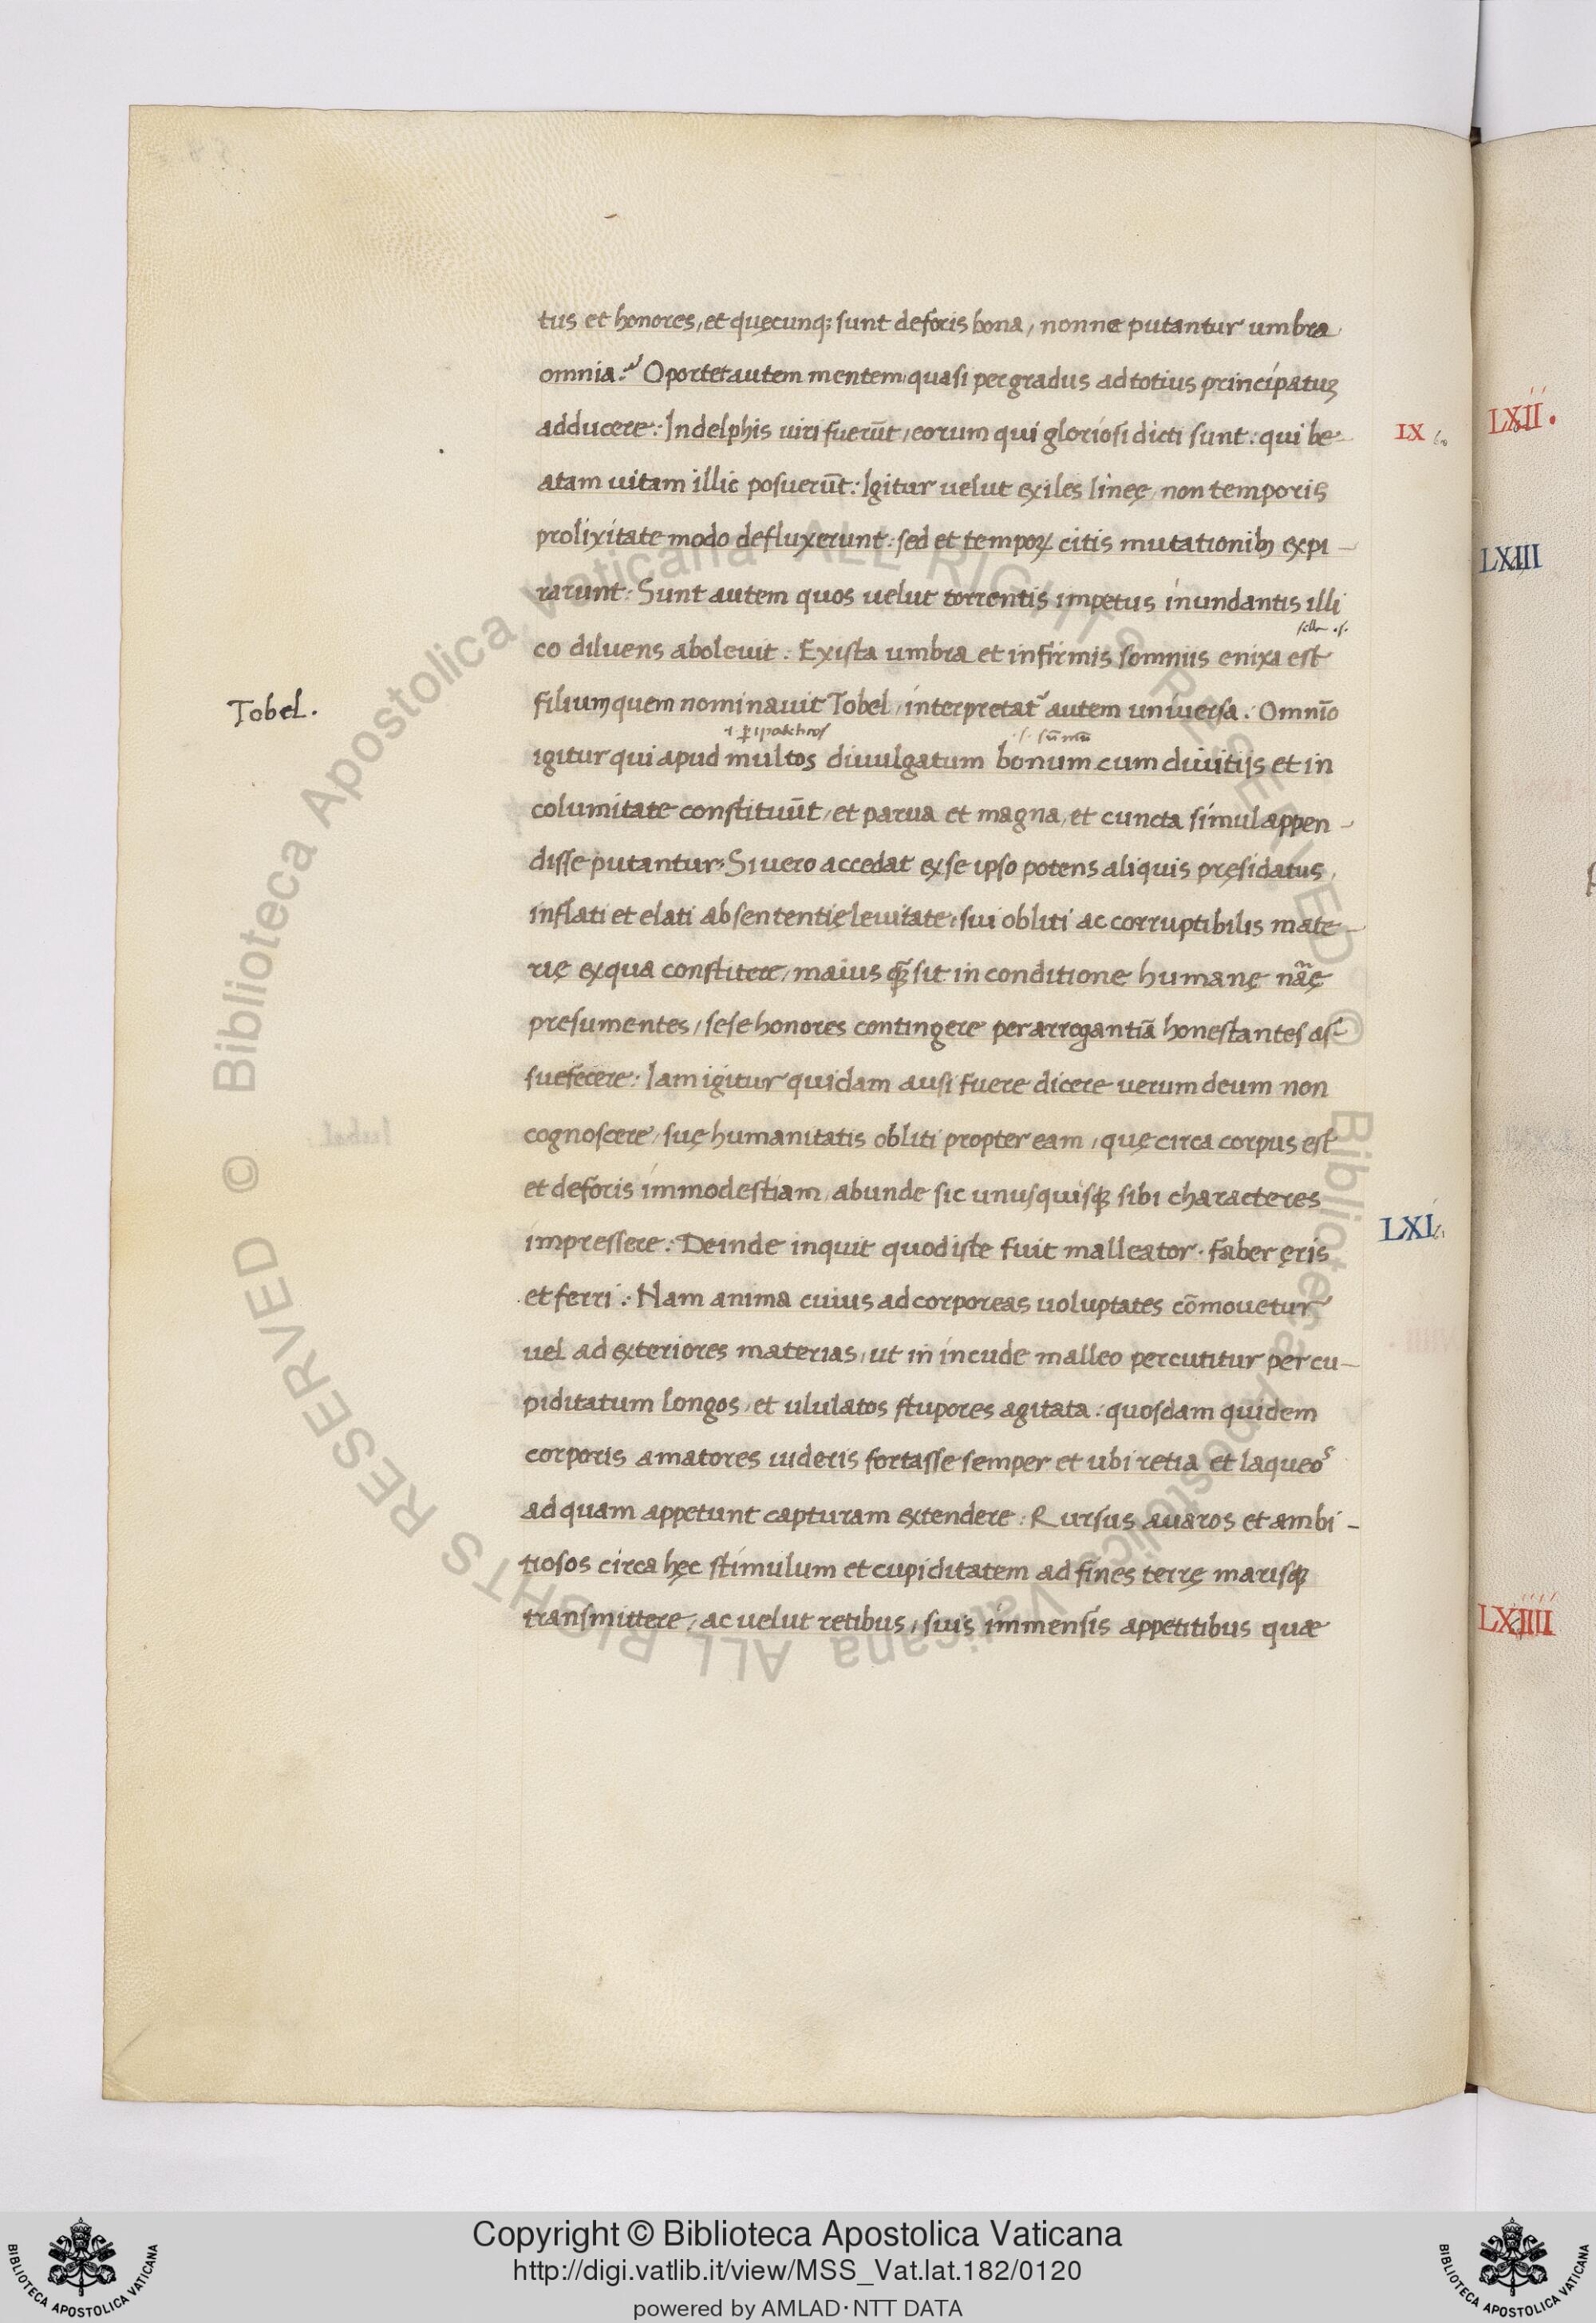 tus et honores, et quęcunq; sunt deforis bona, nonne putantur umbra
omnia? Oportet autem mentem quasi per gradus ad totius principatuȝ
adducere: In delphis uiri fuerūt, eorum qui gloriosi dicti sunt: qui be-
LX
atam uitam illic posuerūt: Igitur uelut exiles lineę, non temporis
prolixitate modo defluxerunt: sed et tempoꝝ citis mutationibȝ expi-
rarunt: Sunt autem quos uelut torrentis impetus inundantis illi
co diluens aboleuit: Ex ista umbra et infirmis somniis enixa est
Tobel.
filium quem nominauit Tobel, interpretat᷑ autem uniuersa: Omnīo
igitur qui apud multos diuulgatum bonum cum diuitijs et in
columitate constituūt, et parua et magna, et cuncta simul appen-
disse putantur: Si uero accedat ex se ipso potens aliquis pręsidatus,
inflati et elati ab sententię leuitate: sui obliti ac corruptibilis mate-
rię ex qua constitere, maius ꝙ̄ sit in conditione humanę nāę
presumentes, sese honores contingere per arrogantiā honestantes as-
suefecere: Iam igitur quidam ausi fuere dicere uerum deum non
cognoscere, suę humanitatis obliti propter eam, quę circa corpus est
et deforis immodestiam, abunde sic unusquisqȝ sibi characteres
LXI
impressere: Deinde inquit quod iste fuit malleator. faber ęris
et ferri: Nam anima cuius ad corporeas uoluptates cōmouetur
uel ad exteriores materias, ut in incude malleo percutitur per cu-
piditatum longos, et ululatos stupores agitata: quosdam quidem
corporis amatores uideris fortasse semper et ubi retia et laqueos
ad quam appetunt capturam extendere: Rursus auaros et ambi-
tiosos circa hęc stimulum et cupiditatem ad fines terrę marisqȝ
transmittere, ac uelut retibus, suis immensis appetitibus quæ
LXII.
LXIII
LXIIII
© Biblioteca Apostolica Vaticana ALL RIGHTS RESERVED © Biblioteca Apostolica Vaticana ALL RIGHTS RESERVED
Copyright © Biblioteca Apostolica Vaticana
http://digi.vatlib.it/view/MSS_Vat.lat.182/0120
powered by AMLAD·NTT DATA
BIBLIOTECA APOSTOLICA VATICANA
BIBLIOTECA APOSTOLICA VATICANA